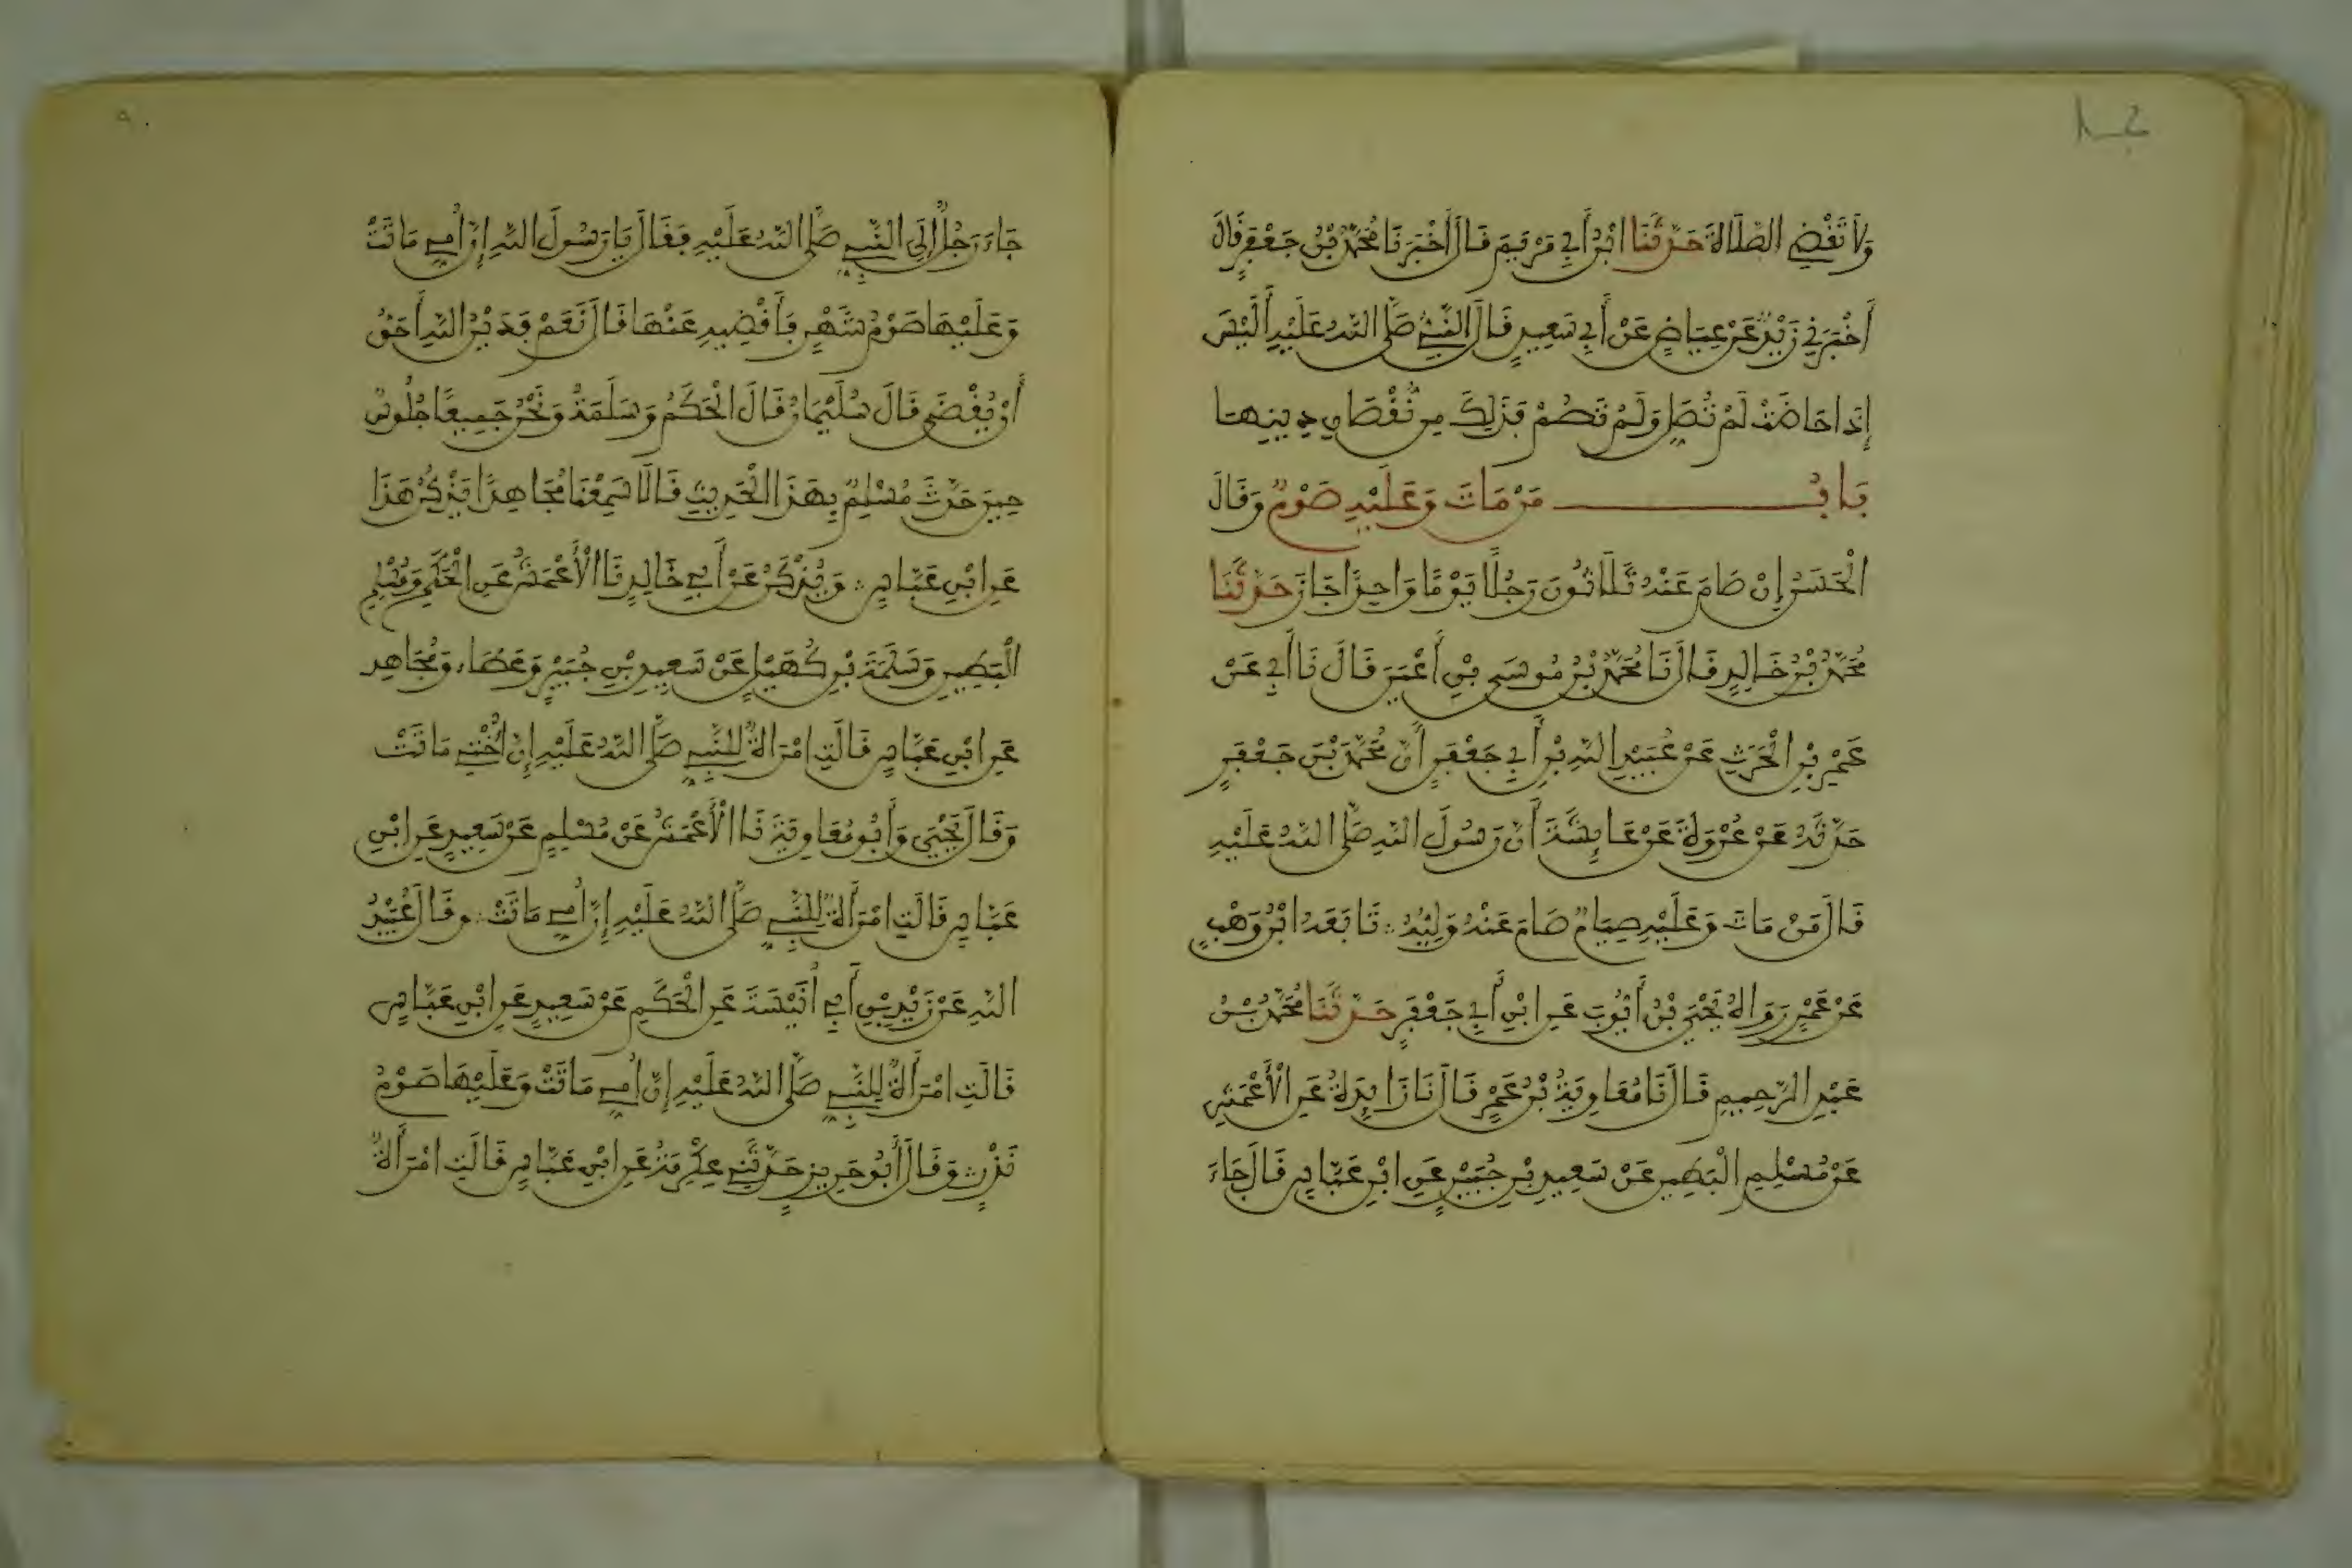 وَلَا تَقْضِي الصَّلَاةَ حَدَّثَنَا ابْنُ أَبِي مَرْيَمَ قَالَ أَخْبَرَنَا مُحَمَّدُ بْنُ جَعْفَرٍ قَالَ
أَخْبَرَنِي زَيْدٌ عَنْ عِيَاضٍ عَنْ أَبِي سَعِيدٍ قَالَ النَّبِيُّ صَلَّى اللَّهُ عَلَيْهِ أَلَيْسَ
إِذَا حَاضَتْ لَمْ تُصَلِّ وَلَمْ تَصُمْ فَذَلِكَ مِن نُّقْصَانِ دِينِهَا
بَابُ مَنْ مَاتَ وَعَلَيْهِ صَوْمٌ وَقَالَ
الْحَسَنُ إِنْ صَامَ عَنْهُ ثَلَاثُونَ رَجُلًا يَوْمًا وَاحِدًا جَازَ حَدَّثَنَا
مُحَمَّدُ بْنُ خَالِدٍ قَالَ نَا مُحَمَّدُ بْنُ مُوسَى بْنِ أَعْيَنَ قَالَ نَا أَبِي عَنْ
عَمْرِو بْنِ الْحَرِثِ عَنْ عُبَيْدِ اللَّهِ بْنِ أَبِي جَعْفَرٍ أَنَّ مُحَمَّدَ بْنَ جَعْفَرٍ
حَدَّثَهُ عَنْ عُرْوَةَ عَنْ عَايِشَةَ أَنَّ رَسُولَ اللَّهِ صَلَّى اللَّهُ عَلَيْهِ
قَالَ مَنْ مَاتَ وَعَلَيْهِ صِيَامٌ صَامَ عَنْهُ وَلِيُّهُ ∴ تَابَعَهُ ابْنُ وَهْبٍ
عَنْ عَمْرٍو رَوَاهُ يَحْيَى بْنُ أَيُّوبَ عَنِ ابْنِ أَبِي جَعْفَرٍ حَدَّثَنَا مُحَمَّدُ بْنُ
عَبْدِ الرَّحِيمِ قَالَ نَا مُعَاوِيَةُ بْنُ عَمْرٍو قَالَ نَا زَايِدَةُ عَنِ الْأَعْمَشِ
عَنْ مُسْلِمٍ الْبَطِينِ عَنْ سَعِيدِ بْنِ جُبَيْرٍ عَنِ ابْنِ عَبَّاسٍ قَالَ جَاءَ
جَاءَ رَجُلٌ إِلَى النَّبِيِّ صَلَّى اللَّهُ عَلَيْهِ فَقَالَ يَا رَسُولَ اللَّهِ إِنَّ أُمِّي مَاتَتْ
وَعَلَيْهَا صَوْمُ شَهْرٍ فَأَقْضِيهِ عَنْهَا قَالَ نَعَمْ فَدَيْنُ اللَّهِ أَحَقُّ
أَنْ يُقْضَى قَالَ سُلَيْمَانُ قَالَ الْحَكَمُ وَسَلَمَةُ وَنَحْنُ جَمِيعًا جُلُوسٌ
حِينَ حَدَّثَ مُسْلِمٌ بِهَذَا الْحَدِيثِ قَالَا سَمِعْنَا مُجَاهِدًا يَذْكُرُ هَذَا
عَنِ ابْنِ عَبَّاسٍ ∴ وَيُذْكَرُ عَنْ أَبِي خَالِدٍ نَا الْأَعْمَشُ عَنِ الْحَكَمِ وَمُسْلِمٍ
الْبَطِينِ وَسَلَمَةَ بْنِ كُهَيْلٍ عَنْ سَعِيدِ بْنِ جُبَيْرٍ وَعَطَاءٍ وَمُجَاهِدٍ
عَنِ ابْنِ عَبَّاسٍ قَالَتِ امْرَأَةٌ لِلنَّبِيِّ صَلَّى اللَّهُ عَلَيْهِ إِنَّ أُخْتِي مَاتَتْ
وَقَالَ يَحْيَى وَأَبُو مُعَاوِيَةَ نَا الْأَعْمَشُ عَنْ مُسْلِمٍ عَنْ سَعِيدٍ عَنِ ابْنِ
عَبَّاسٍ قَالَتِ امْرَأَةٌ لِلنَّبِيِّ صَلَّى اللَّهُ عَلَيْهِ إِنَّ أُمِّي مَاتَتْ ∴ وَقَالَ عُبَيْدُ
اللَّهِ عَنْ زَيْدِ بْنِ أَبِي أُنَيْسَةَ عَنِ الْحَكَمِ عَنْ سَعِيدٍ عَنِ ابْنِ عَبَّاسٍ
قَالَتِ امْرَأَةٌ لِلنَّبِيِّ صَلَّى اللَّهُ عَلَيْهِ إِنَّ أُمِّي مَاتَتْ وَعَلَيْهَا صَوْمُ
نَذْرٍ وَقَالَ أَبُو حَرِيزٍ حَدَّثَنِي عِكْرِمَةُ عَنِ ابْنِ عَبَّاسٍ قَالَتِ امْرَأَةٌ